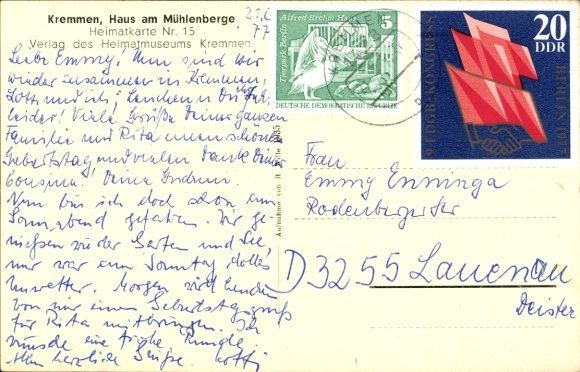 Kremmen, Haus am Mühlenberge
Heimatkarte Nr. 15
Verlag des Heimatmuseums Kremmen
21.6.
77
Liebe Emmy! Nun sind wir
wieder zusammen in Kremmen,
Lotti und ich;
leider! Viele Grüße Deiner ganzen
Familie und Rita einen schönen
Geburtstag und vielen Dank Deine
Cousine. Deine Gudrun.
Nun bin ich doch schon am
Sonnabend gefahren. Wir ge-
nießen wieder Garten und See,
nur war am Sonntag tolles
Unwetter. Morgen wird
von mir einen Geburtstagsgruß
für Rita mitbringen. Ich
wünsche eine frohe Runde.
Allen herzliche Grüße. Lotti
Aufnahme von H.
Alfred Brehm Haus
5
Tierpark Berlin
DEUTSCHE DEMOKRATISCHE REPUBLIK
20
DDR
9. FDGB-KONGRESS
BERLIN 1977
KREMMEN
Frau
Emmy Enninga
Rodenberger Str
D 3255 Lauenau
Deister